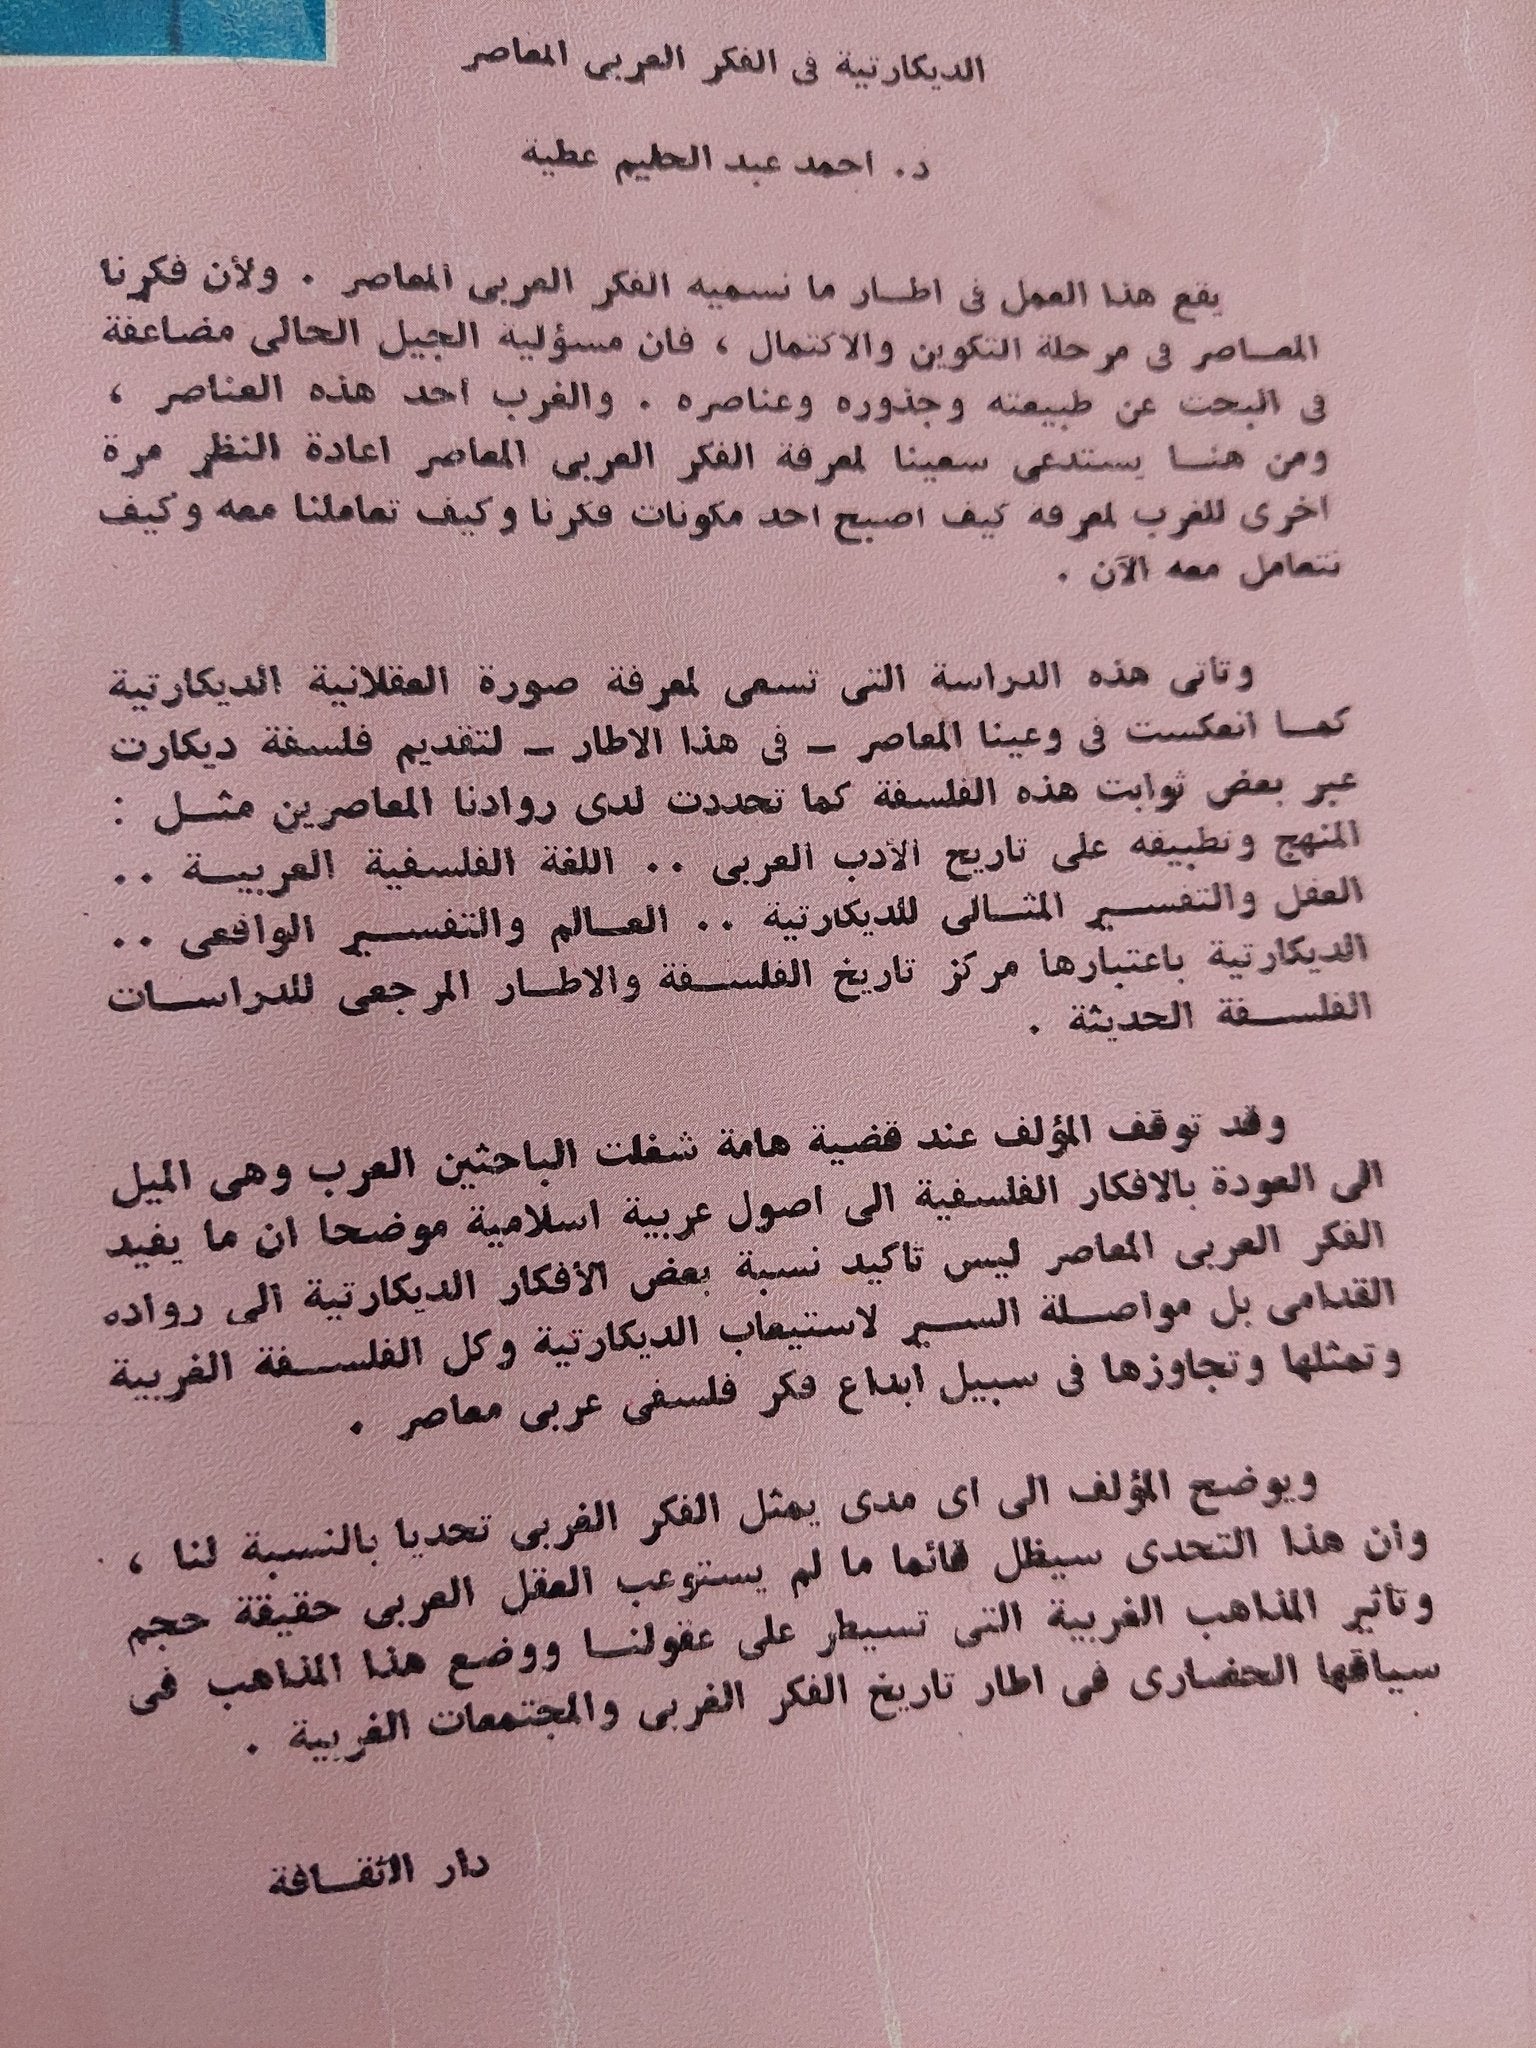 الديكارتية فى الفكر العربى المعاصر
د. احمد عبد الحليم عطية
يقع هذا العمل فى اطار ما نسميه الفكر العربى المعاصر . ولأن فكرنا
المعاصر فى مرحلة التكوين والاكتمال ، فان مسؤلية الجيل الحالى مضاعفة
فى البحث عن طبيعته وجذوره وعناصره . والغرب احد هذه العناصر ،
ومن هنا يستدعى سعينا لمعرفة الفكر العربى المعاصر اعادة النظر مرة
اخرى للغرب لمعرفة كيف اصبح احد مكونات فكرنا وكيف تعاملنا معه وكيف
نتعامل معه الآن .
وتأتى هذه الدراسة التى تسعى لمعرفة صورة العقلانية الديكارتية
كما انعكست فى وعينا المعاصر – فى هذا الاطار – لتقديم فلسفة ديكارت
عبر بعض ثوابت هذه الفلسفة كما تحددت لدى روادنا المعاصرين مثل :
المنهج وتطبيقه على تاريخ الأدب العربى .. اللغة الفلسفية العربية ..
العقل والتفسير المثالى للديكارتية .. العالم والتفسير الواقعى ..
الديكارتية باعتبارها مركز تاريخ الفلسفة والاطار المرجعى للدراسات
الفلسفة الحديثة .
وقد توقف المؤلف عند قضية هامة شغلت الباحثين العرب وهى الميل
الى العودة بالافكار الفلسفية الى اصول عربية اسلامية موضحا ان ما يفيد
الفكر العربى المعاصر ليس تاكيد نسبة بعض الأفكار الديكارتية الى رواده
القدامى بل مواصلة السير لاستيعاب الديكارتية وكل الفلسفة الغربية
وتمثلها وتجاوزها فى سبيل ابداع فكر فلسفى عربى معاصر .
ويوضح المؤلف الى اى مدى يمثل الفكر الغربى تحديا بالنسبة لنا ،
وأن هذا التحدى سيظل قائما ما لم يستوعب العقل العربى حقيقة حجم
وتأثير المذاهب الغربية التى تسيطر على عقولنا ووضع هذا المذاهب فى
سياقها الحضارى فى اطار تاريخ الفكر الغربى والمجتمعات الغربية .
دار الثقافة